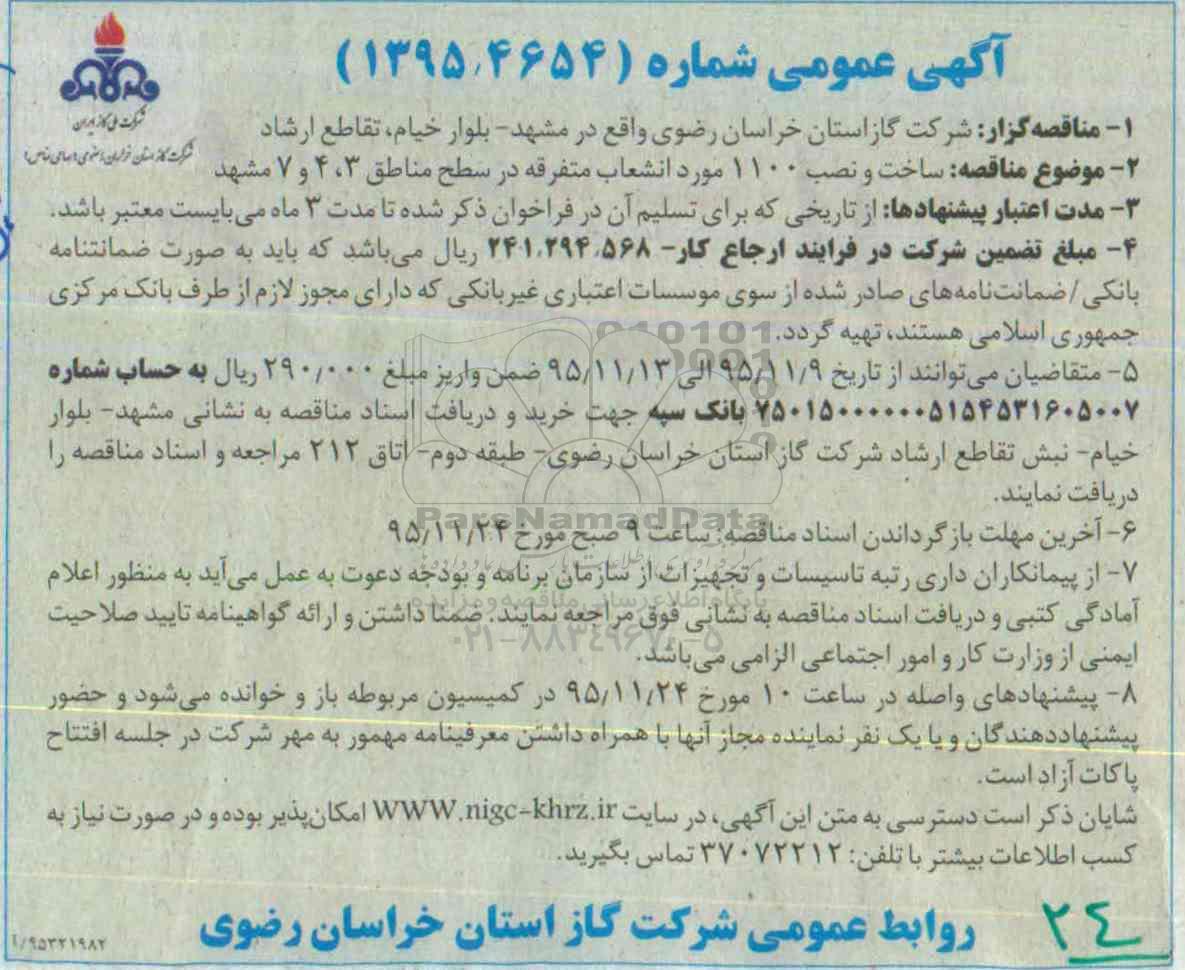 آگهی عمومی شماره (۱۳۹۵,۴۶۵۴)
شرکت ملی گاز ایران
شرکت گاز استان خراسان رضوی (سهامی خاص)
۱- مناقصه‌گزار: شرکت گاز استان خراسان رضوی واقع در مشهد- بلوار خیام، تقاطع ارشاد
۲- موضوع مناقصه: ساخت و نصب ۱۱۰۰ مورد انشعاب متفرقه در سطح مناطق ۳، ۴ و ۷ مشهد
۳- مدت اعتبار پیشنهادها: از تاریخی که برای تسلیم آن در فراخوان ذکر شده تا مدت ۳ ماه می‌بایست معتبر باشد.
۴- مبلغ تضمین شرکت در فرایند ارجاع کار- ۲۴۱,۲۹۴,۵۶۸ ریال می‌باشد که باید به صورت ضمانتنامه
بانکی/ضمانت‌نامه‌های صادر شده از سوی موسسات اعتباری غیربانکی که دارای مجوز لازم از طرف بانک مرکزی
جمهوری اسلامی هستند، تهیه گردد.
۵- متقاضیان می‌توانند از تاریخ ۹۵/۱۱/۹ الی ۹۵/۱۱/۱۳ ضمن واریز مبلغ ۲۹۰/۰۰۰ ریال به حساب شماره
۷۵۰۱۵۰۰۰۰۰۰۰۵۱۵۴۵۳۱۶۰۵۰۰۷ بانک سپه جهت خرید و دریافت اسناد مناقصه به نشانی مشهد- بلوار
خیام- نبش تقاطع ارشاد شرکت گاز استان خراسان رضوی- طبقه دوم- اتاق ۲۱۲ مراجعه و اسناد مناقصه را
دریافت نمایند.
ParsNamadData
۶- آخرین مهلت بازگرداندن اسناد مناقصه: ساعت ۹ صبح مورخ ۹۵/۱۱/۲۴
۷- از پیمانکاران داری رتبه تاسیسات و تجهیزات از سازمان برنامه و بودجه دعوت به عمل می‌آید به منظور اعلام
پایگاه اطلاع رسانی مناقصه و مزایده
آمادگی کتبی و دریافت اسناد مناقصه به نشانی فوق مراجعه نمایند. ضمنا داشتن و ارائه گواهینامه تایید صلاحیت
۰۲۱-۸۸۳۴۹۶۷۰-۵
ایمنی از وزارت کار و امور اجتماعی الزامی می‌باشد.
۸- پیشنهادهای واصله در ساعت ۱۰ مورخ ۹۵/۱۱/۲۴ در کمیسیون مربوطه باز و خوانده می‌شود و حضور
پیشنهاددهندگان و یا یک نفر نماینده مجاز آنها با همراه داشتن معرفینامه مهمور به مهر شرکت در جلسه افتتاح
پاکات آزاد است.
شایان ذکر است دسترسی به متن این آگهی، در سایت WWW.nigc-khrz.ir امکان‌پذیر بوده و در صورت نیاز به
کسب اطلاعات بیشتر با تلفن: ۳۷۰۷۲۲۱۲ تماس بگیرید.
روابط عمومی شرکت گاز استان خراسان رضوی
۲۴
۹۵۳۲۱۹۸۲/آ